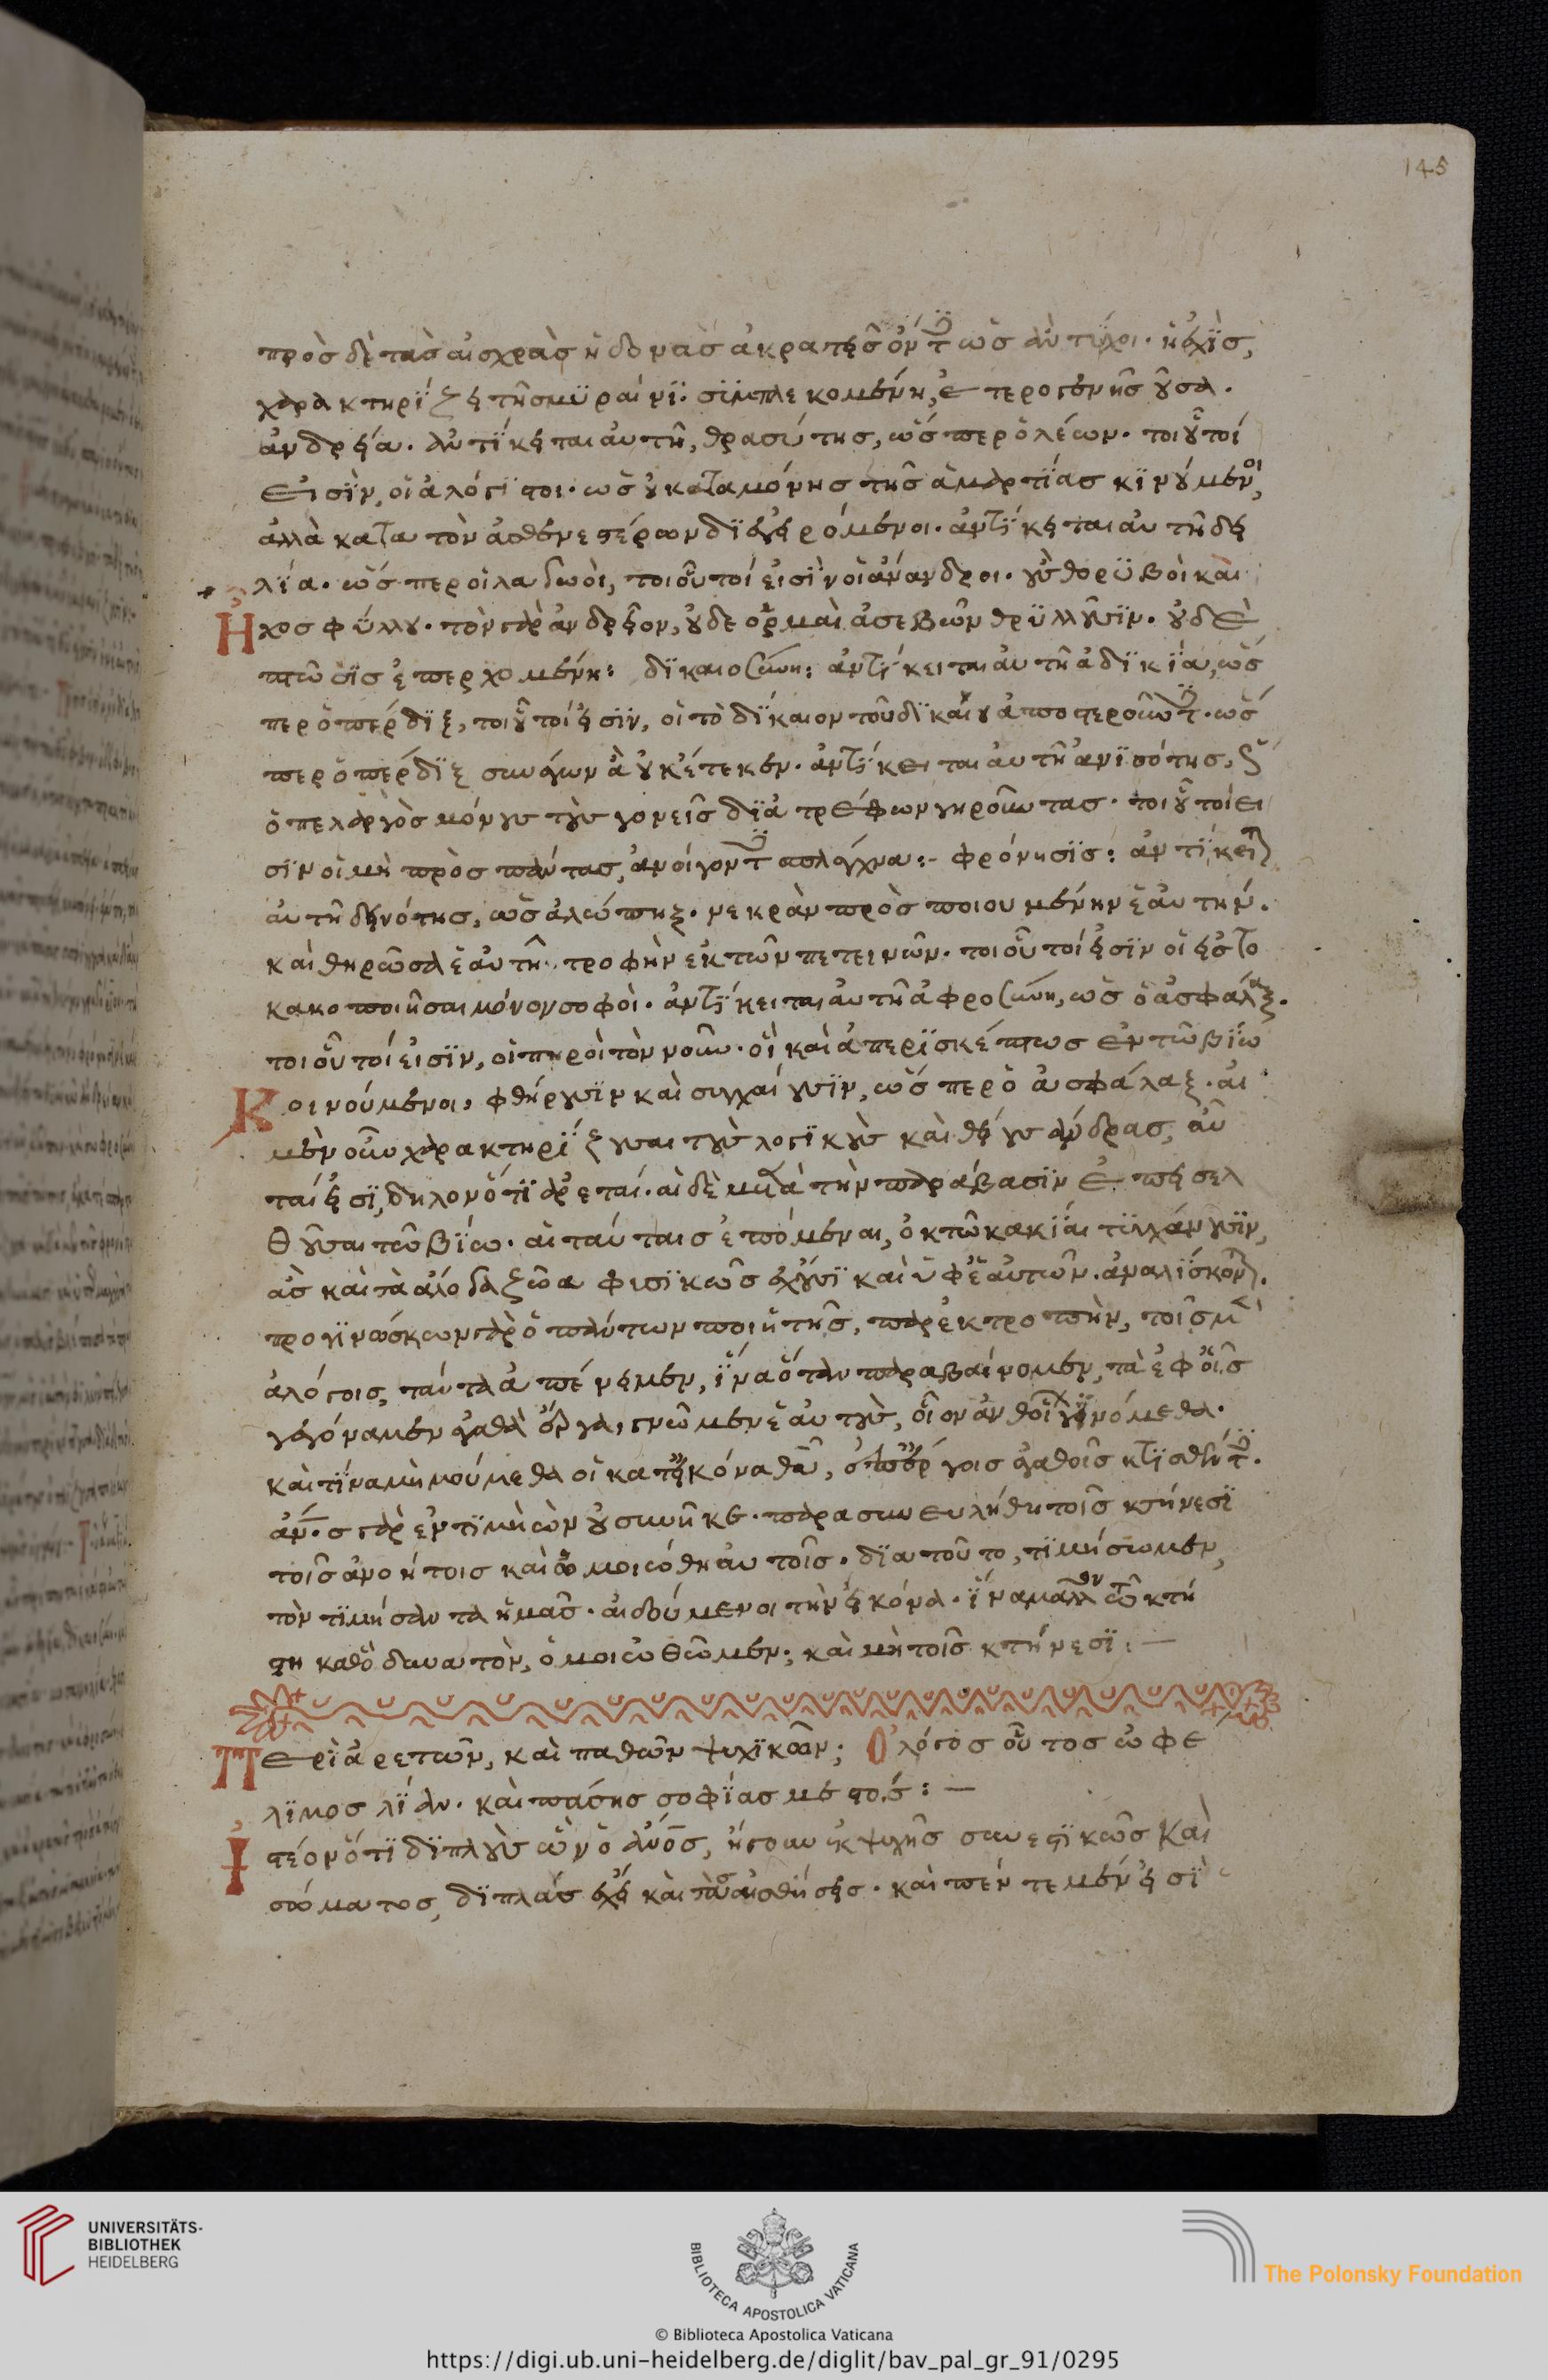 145
πρὸς δὲ τὰς αἰσχρὰς ἡδονὰς ἀκρατεῖς ὄντ ὡς ἂν τύχοι. ἡ ἔχϊς,
χαρακτηρΐζει τῆ σμϋραίνϊ. σϋμπλεκομένη, ἑτερογενῆς οὖσα.
ἀνδρεία. ἀντϊκειται αὐτῆ, θρασύτης, ὥσπερ ὁ λέων. τοιοῦτοί
εἰσϊν, οἱ ἀλόγϊστοι. ὡς οὐ κατα μόνης τῆς ἁμαρτΐας κϊνούμενοι,
ἀλλὰ κατα τὸν ἀσθενεστέρων δϊεγειρόμενοι. ἀντΐκειται αὐτῆ δει
λΐα. ὥσπερ οἱ λαγωοὶ, τοιοῦτοί εἰσὶν οἱ ἄνανδροι. οὓς θορϋβοὶ καὶ
ἦχος φϋλλου. τὸν γὰρ ἀνδρεῖον, οὐδε ὁρμαὶ ἀσεβῶν θρϋλλοῦσϊν. οὐδὲ
πτῶσϊς ἐπερχομένη: δϊκαιοσύνη: ἀντΐκειται αὐτῆ ἀδϊκΐα, ὥσ
περ ὁ πέρδϊξ, τοιοῦτοί εἰσϊν, οἱ τὸ δΐκαιον τοῦ δϊκαίου ἀποστεροῦντ. ὥσ
περ ὁ πέρδϊξ συνάγων ἃ οὐκ ἔτεκεν. ἀντΐκειται αὐτῆ ἀνϊσότης,
ὁ πελαργὸς μόνους τοὺς γονεῖς δϊατρέφων γηροῦντας. τοιοῦτοί εἰ
σϊν οἱ μὴ πρὸς πάντας, ἀνοίγοντ σπλάγχνα:- φρόνησϊς: ἀντΐκειται
αὐτῆ δεινότης, ὡς ἀλώπηξ. νεκρὰν πρὸς ποιουμένην ἑαυτήν.
καὶ θηρῶσα ἑαυτῆ τροφὴν ἐκ τῶν πετεινῶν. τοιοῦτοί εἰσϊν οἱ εἰς το
κακοποιῆσαι μόνον σοφοὶ. ἀντΐκειται αὐτῆ ἀφροσύνη, ὡς ὁ ἀσφάλαξ.
τοιοῦτοί εἰσϊν, οἱ πηροὶ τὸν νοῦν. οἳ καὶ ἀπερϊσκέπτως ἐν τῶ βΐω
κοινούμενοι, φθήρουσϊν καὶ συγχαίουσϊν, ὥσπερ ὁ ἀσφάλαξ. αἱ
μὲν οὖν χαρακτηρΐζουσαι τοὺς λογϊκοὺς καὶ θείους ἄνδρας, αὗ
ταί εἰσϊ, δηλονότϊ ἀρεταί. αἱ δὲ μετὰ τὴν παράβασϊν ἐπεισελ
θοῦσαι τῶ βΐω. αἱ ταύταις ἑπόμεναι, ὀκτὼ κακΐαι τϋγχάνουσϊν,
ἃς καὶ τὰ ἄλογα ζῶα φισϊκῶς ἔχουσϊ καὶ ὑφ' ἑαυτῶν. ἀναλΐσκονται.
προγϊνώσκων γὰρ ὁ πάντων ποιητῆς, παρεκτροπὴν, τοῖς μὲν
ἀλόγοις, ταύτα ἀπένειμεν, ἵνα ὅταν παραβαίνομεν, τὰ ἐφ' οἷς
γεγόναμεν ἀγαθὰ ἔργα, γνῶμεν ἑαυτοὺς, οἷον ἀνθ' οἵων γϊνόμεθα.
καὶ τΐνα μϊμούμεθα οἱ κατ' εἰκόνα θῦ, ἐπ' ἔργοις ἀγαθοῖς κτϊσθέντ.
ἄνος γὰρ ἐν τϊμῆ ὢν οὐ συνῆκε. παρασυνευλήθη τοῖς κτήνεσϊ
τοῖς ἀνοήτοις καὶ ὁμοιώθη αὐτοῖς. δϊα τοῦτο, τϊμήσωμεν,
τὸν τϊμήσαντα ἡμᾶς. αἰδούμενοι τὴν εἰκόνα. ἵνα μᾶλλον τῶ κτί
στη καθὸ δυνατὸν, ὁμοιωθῶμεν; καὶ μὴ τοῖς κτήνεσϊ:—
Περὶ ἀρετῶν, καὶ παθῶν ψυχϊκῶν; Ὁ λόγος οὗτος ὠφέ
λϊμος λΐαν. καὶ πάσης σοφΐας μεστός:—
Ἰστέον ὅτϊ δϊπλοὺς ὢν ὁ ἄνος, ἤγουν ἐκ ψυχῆς συνεστϊκῶς καὶ
σώματος, δϊπλάς ἔχει καὶ τὰς αἰσθήσεις. καὶ πέντε μέν εἰσϊ
UNIVERSITÄTS-
BIBLIOTHEK
HEIDELBERG
BIBLIOTECA APOSTOLICA VATICANA
© Biblioteca Apostolica Vaticana
The Polonsky Foundation
https://digi.ub.uni-heidelberg.de/diglit/bav_pal_gr_91/0295